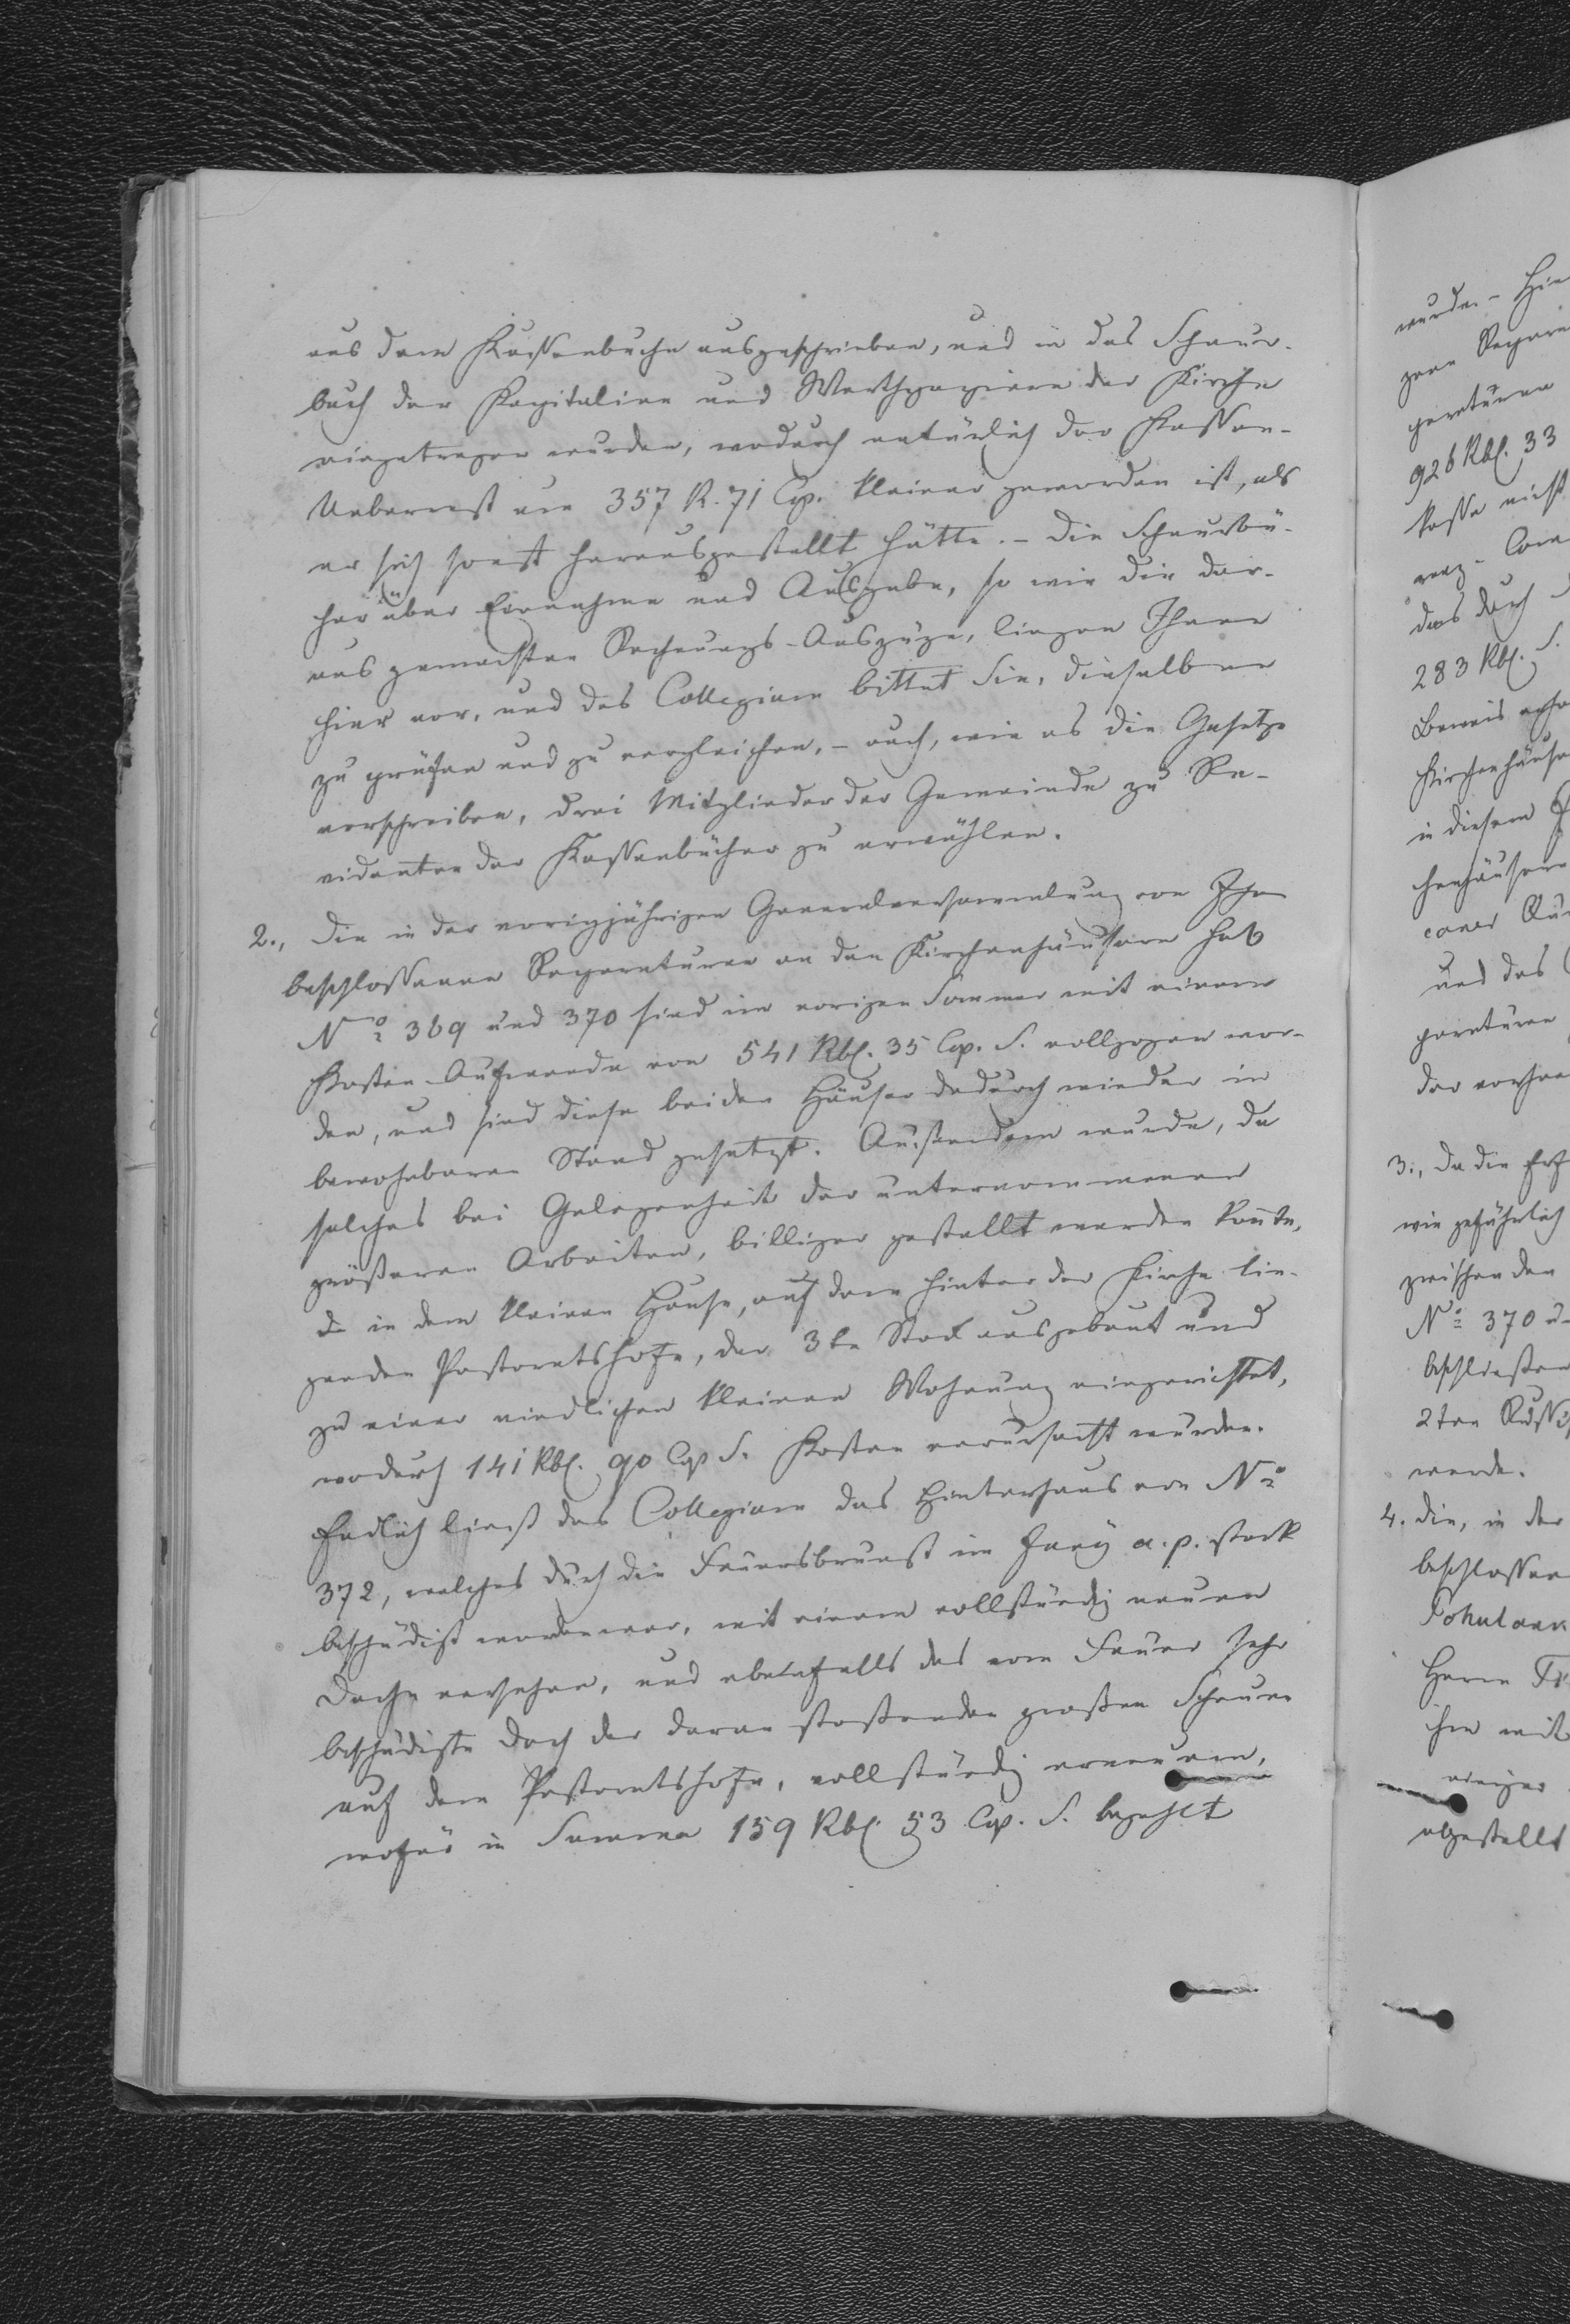 aus dem Kassenbuche ausgeschrieben, und in das Schnur-
buch der Kapitalien und Werthpapiere der Kirche
eingetragen wurden, wodurch natürlich der Kassen-
Ueberrest um 357 R. 71 Cop. kleiner geworden ist, als
er sich sonst herausgestellt hätte. – Die Schnurbü-
cher über Einnahme und Ausgabe, so wie die dar-
aus gemachten Rechnungs-Auszüge, liegen Ihnen
hier vor, und das Collegium bittet Sie, dieselben
zu prüfen und zu vergleichen, – auch, wie es die Gesetze
vorschreiben, drei Mitglieder der Gemeinde zu Re-
videnten der Kassenbücher zu erwählen.
2., Die in der vorigjährigen Generalversammlung von Ihn
beschlossenen Reparaturen an den Kirchenhäusern sub
No 369 und 370 sind im vorigen Sommer mit einem
Kosten-Aufwande von 541 Rbl. 35 Cop. S. vollzogen wor-
den, und sind diese beiden Häuser dadurch wieder in
bewohnbaren Stand gesetzt. Außerdem wurde, da
solches bei Gelegenheit der unternommenen
größeren Arbeiten, billiger gestellt werden konnte,
in dem kleinen Hause, auf dem hinter der Kirche lie-
genden Pastoratshofe, der 3te Stock ausgebaut und
zu einer niedlichen kleinen Wohnung eingerichtet,
wodurch 141 Rbl. 90 Cop S. Kosten verursacht wurden.
Endlich ließ das Collegium das Hinterhaus von No
372, welches durch die Feuersbrunst im a. p. stark
beschädigt worden war, mit einem vollständig neuen
Dache versehen, und ebenfalls das vom Feuer sehr
beschädigte Dach der daran stoßenden großen Scheune
auf dem Pastoratshofe, vollständig erneuern,
wofür in Summa 159 Rbl. 53 Cop. S. bezahlt
wurde. –
926 Rbl. 33
das durch
283 Rbl. S.
Beweis
Kirchenhäuser
in diesem
und das
3., Da die
wie gefährlich
zwischen den
No 370
beschließen
2ten
werde.
4. Die, in der
beschlossen
Herrn
ihm mit
abgestellt